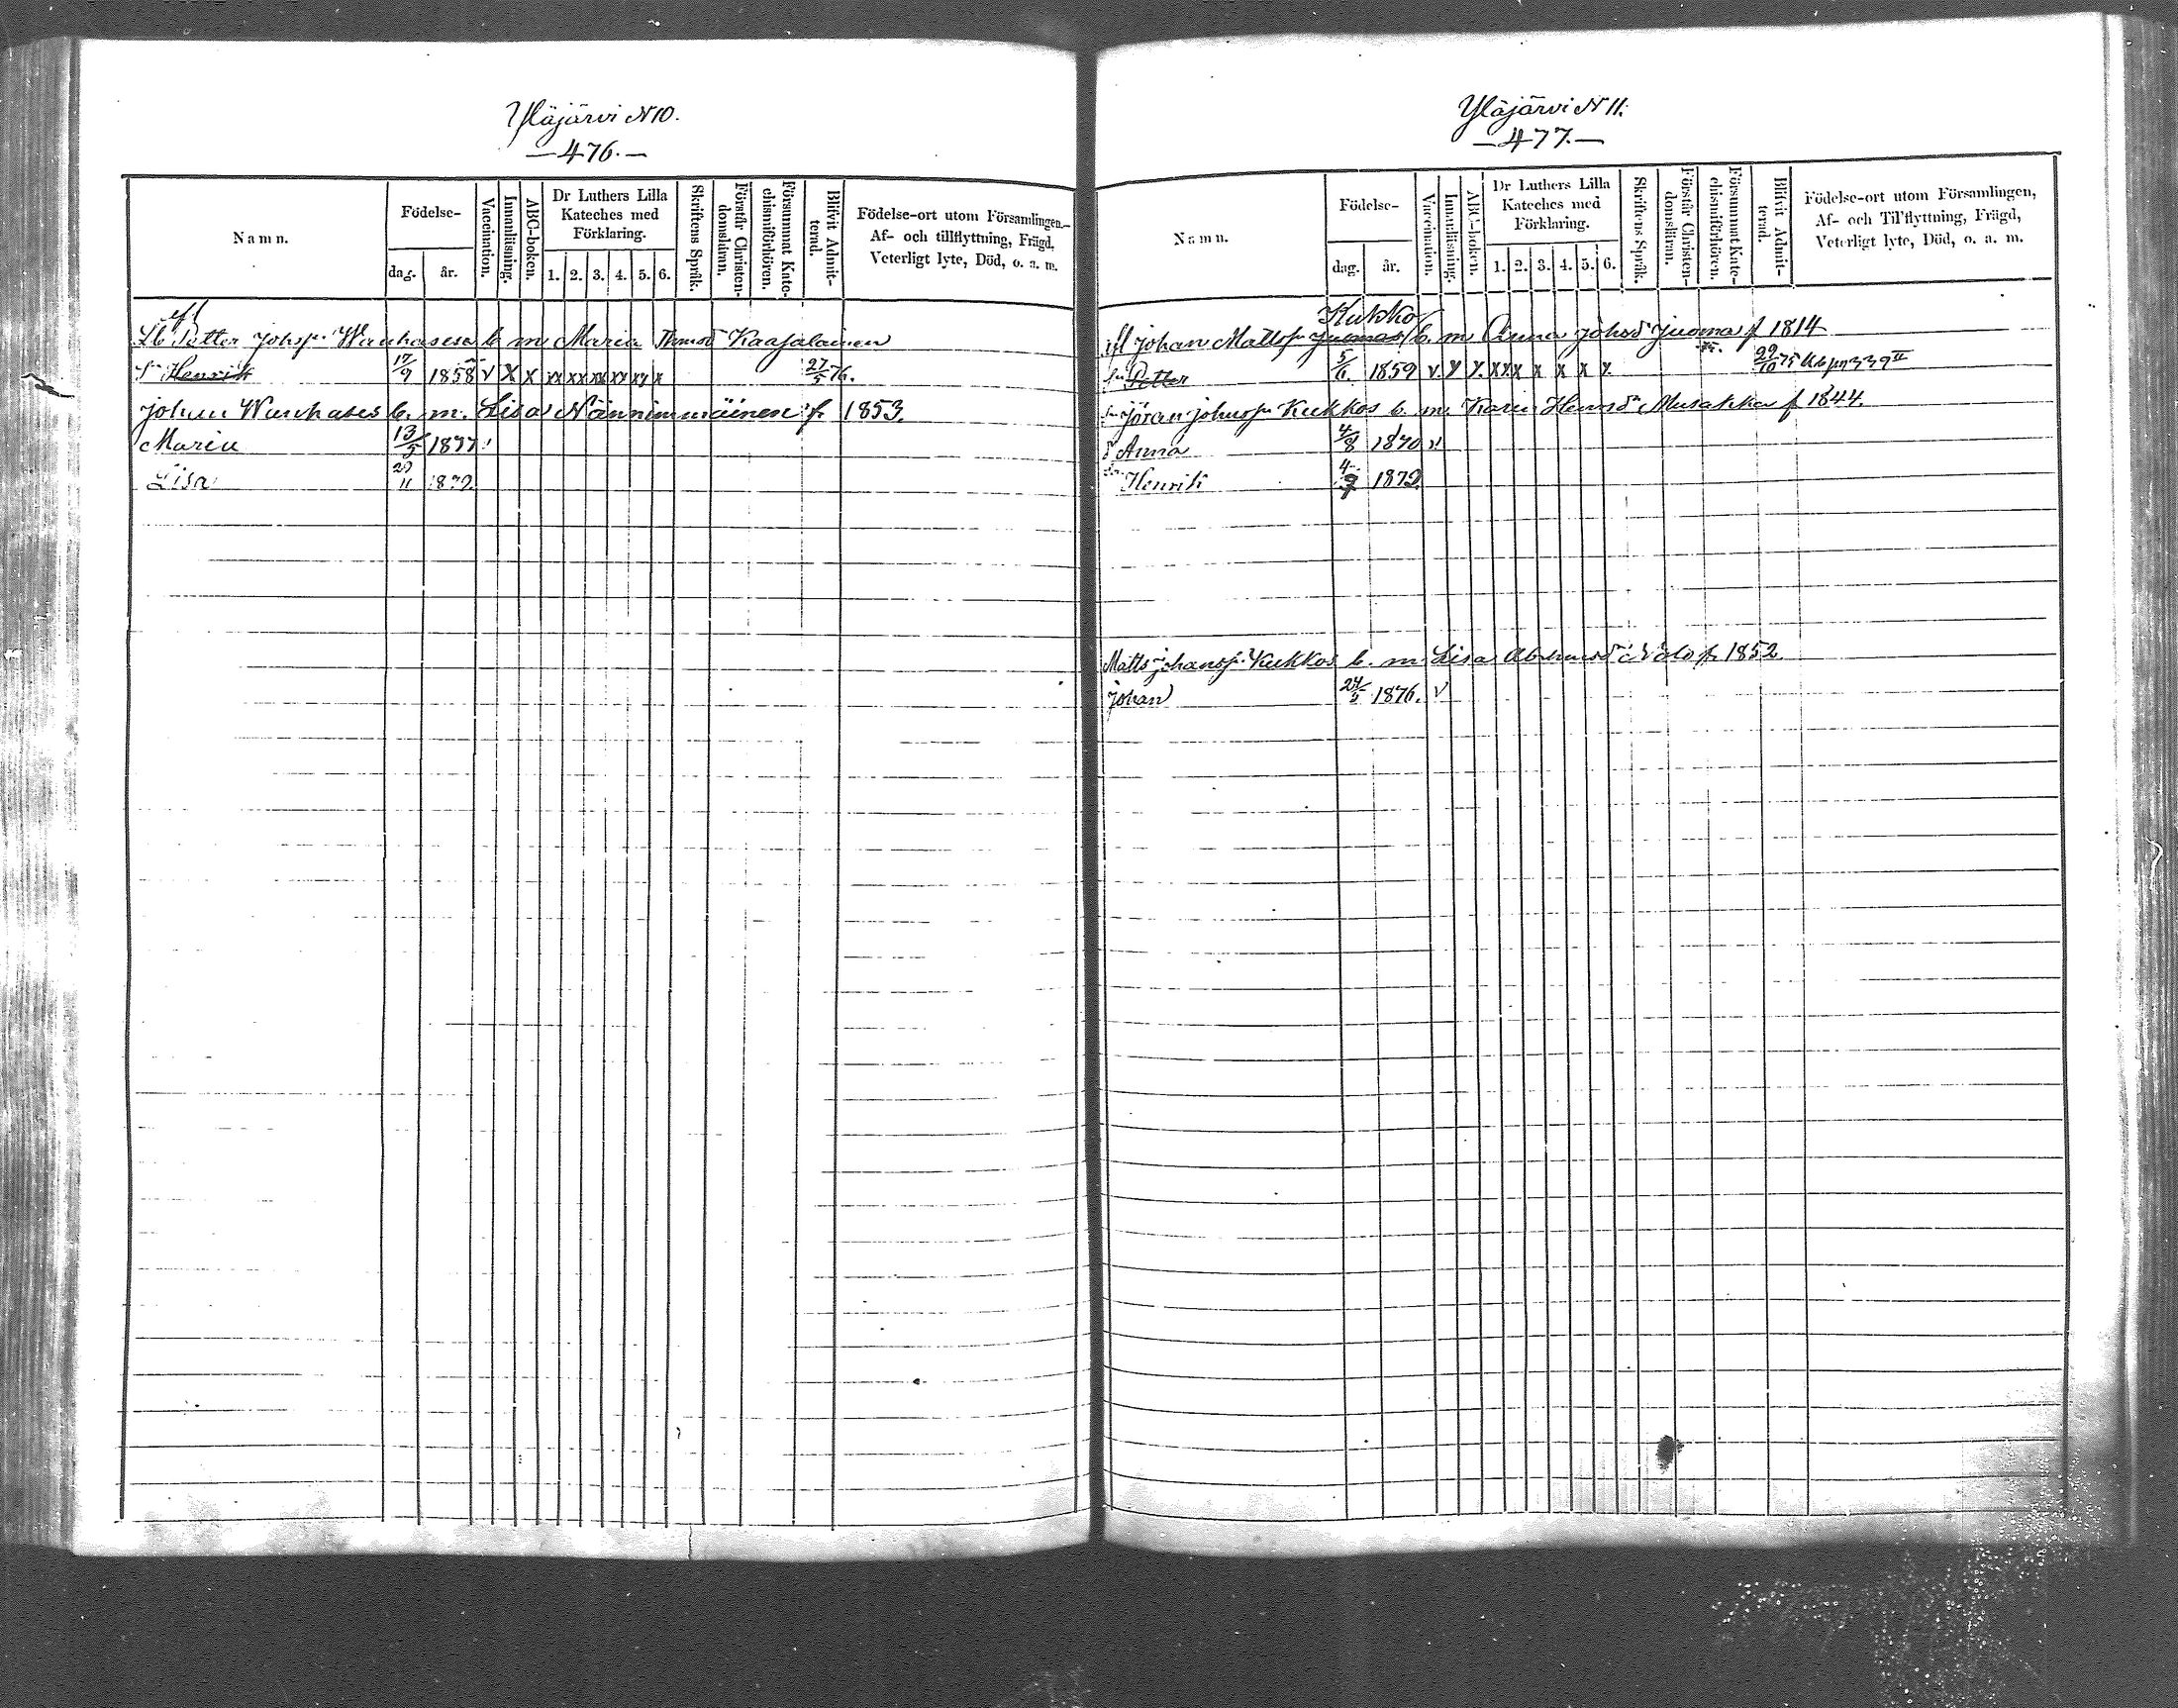 Yläjärvi N 10.
— 476. —
Namn.
Födelse-
dag.
år.
Vaccination.
Innanläsning.
ABC-boken.
Dr Luthers Lilla
Kateches med
Förklaring.
1. 2. 3. 4. 5. 6.
Skriftens Språk.
Förstår Christen-
domsläran.
Försummat Kate-
chismiförhören.
Blifvit Admit-
terad.
Födelse-ort utom Församlingen,
Af- och tillflyttning, Frägd,
Veterligt lyte, Död, o. a. m.
Petter Johsn b. m Maria Thmsd Kaajalainen
Sn Henrik 17/9 1858 v x x xx xx xx xx xy x 27/5 76.
Johan b. m. Lisa f. 1853.
Maria 13/5 1877
Lisa 29/11 1879.
Yläjärvi N 11.
— 477. —
Namn.
Födelse-
dag.
år.
Vaccination.
Innanläsning.
ABC-boken.
Dr Luthers Lilla
Kateches med
Förklaring.
1. 2. 3. 4. 5. 6.
Skriftens Språk.
Förstår Christen-
domsläran.
Försummat Kate-
chismiförhören.
Blifvit Admit-
terad.
Födelse-ort utom Församlingen,
Af- och Tillflyttning, Frägd,
Veterligt lyte, Död, o. a. m.
Kukko
Johan Mattsn Juomas b. m Anna Johsd Juoma f 1814
Sn Petter 5/6. 1859 v. y y. xx x x x x x. 29/10 75
Sn Jöran Johnsn Kukkos b. m. Karin Henrsd Musakka f 1844.
d Anna 4/8 1870 v.
Sn Henrik 1879
Matts Johansn Kukkos b. m Lisa f. 1852
Johan 1876. v